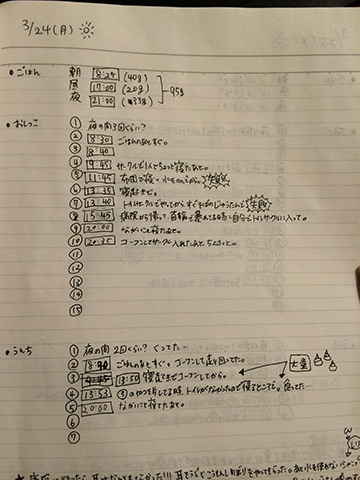 3/24(月)
・ごはん 朝 8:24 (40g)
昼 17:00 (20g) 95g
夜 21:00 (※35g)
・おしっこ ① 夜の間3回くらい?
② 8:30 ごはんのあとすぐ。
③ 8:40
④ 9:45 サークルで1人でちょっと寝たあと。
⑤ 11:45 布団で寝て、水をのんでから。失敗
⑥ 13:35 寝起きせ。
⑦ 13:40 トイレサークルでやってから、すぐそばのじゅうたんに 失敗
⑧ 15:45 病院から帰って、首輪で暴れてる時、自分でトイレサークルに入って。
⑨ 20:00 ながいこと寝たあと。
⑩ 20:35 コーフンしてサークル入れたあと、ちょろっと。
⑪
⑫
⑬
⑭
⑮
・うんち ① 夜の間 2回くらい? くってた…
② 8:40 ごはんのあとすぐ。コーフンして走り回ってた。
③ 13:50 寝起きせコーフンしてから。 大量
④ 13:53 ③のやつを片してる時、トイレがなかったので寝るところに。食ってた…
⑤ 20:00 ながいこと寝てたあと。
⑥
⑦